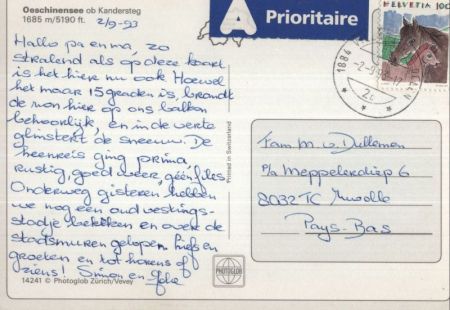 Oeschinensee ob Kandersteg
1685 m/5190 ft.
2/9-93
Hallo pa en ma, zo
stralend als op deze kaart
is het hier nu ook Hoewel
het maar 15 graden is, brandt
de zon hier op ons balkon
behoorlijk, en in de verte
glinstert de sneeuw. De
heenreis ging prima
rustig, goed weer, géén files
Onderweg gisteren hebben
we nog een oud vestings-
stadje bekeken en over de
stadsmuren gelopen. Liefs en
groeten en tot horens of
ziens! Simon en
14241 © Photoglob Zürich/Vevey
Printed in Switzerland
PHOTOGLOB
A Prioritaire
HELVETIA 100
1884
-2-9.93
Fam. M. v. Dullemen
P/a Meppelerdiep 6
8032TC Zwolle
Pays-Bas